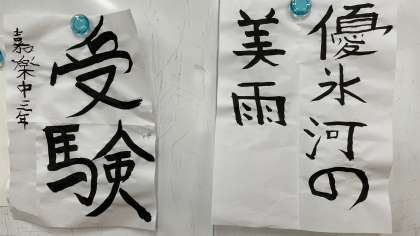 優氷河の
美雨
受験
嘉楽中三年